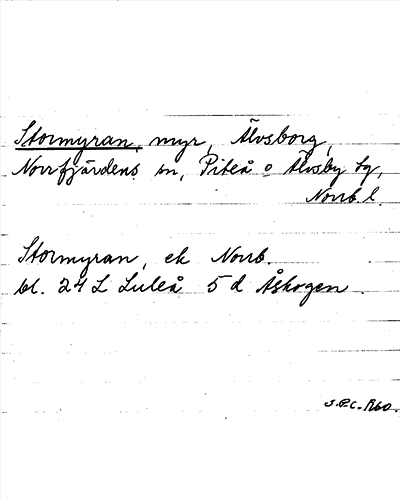 Stormyran, myr, Älvsborg,
Norrfjärdens sn, Piteå o Älvsby tg,
Norrb. l.
Stormyran, ek Norrb.
bl. 24 L Luleå 5 d Åskogen.